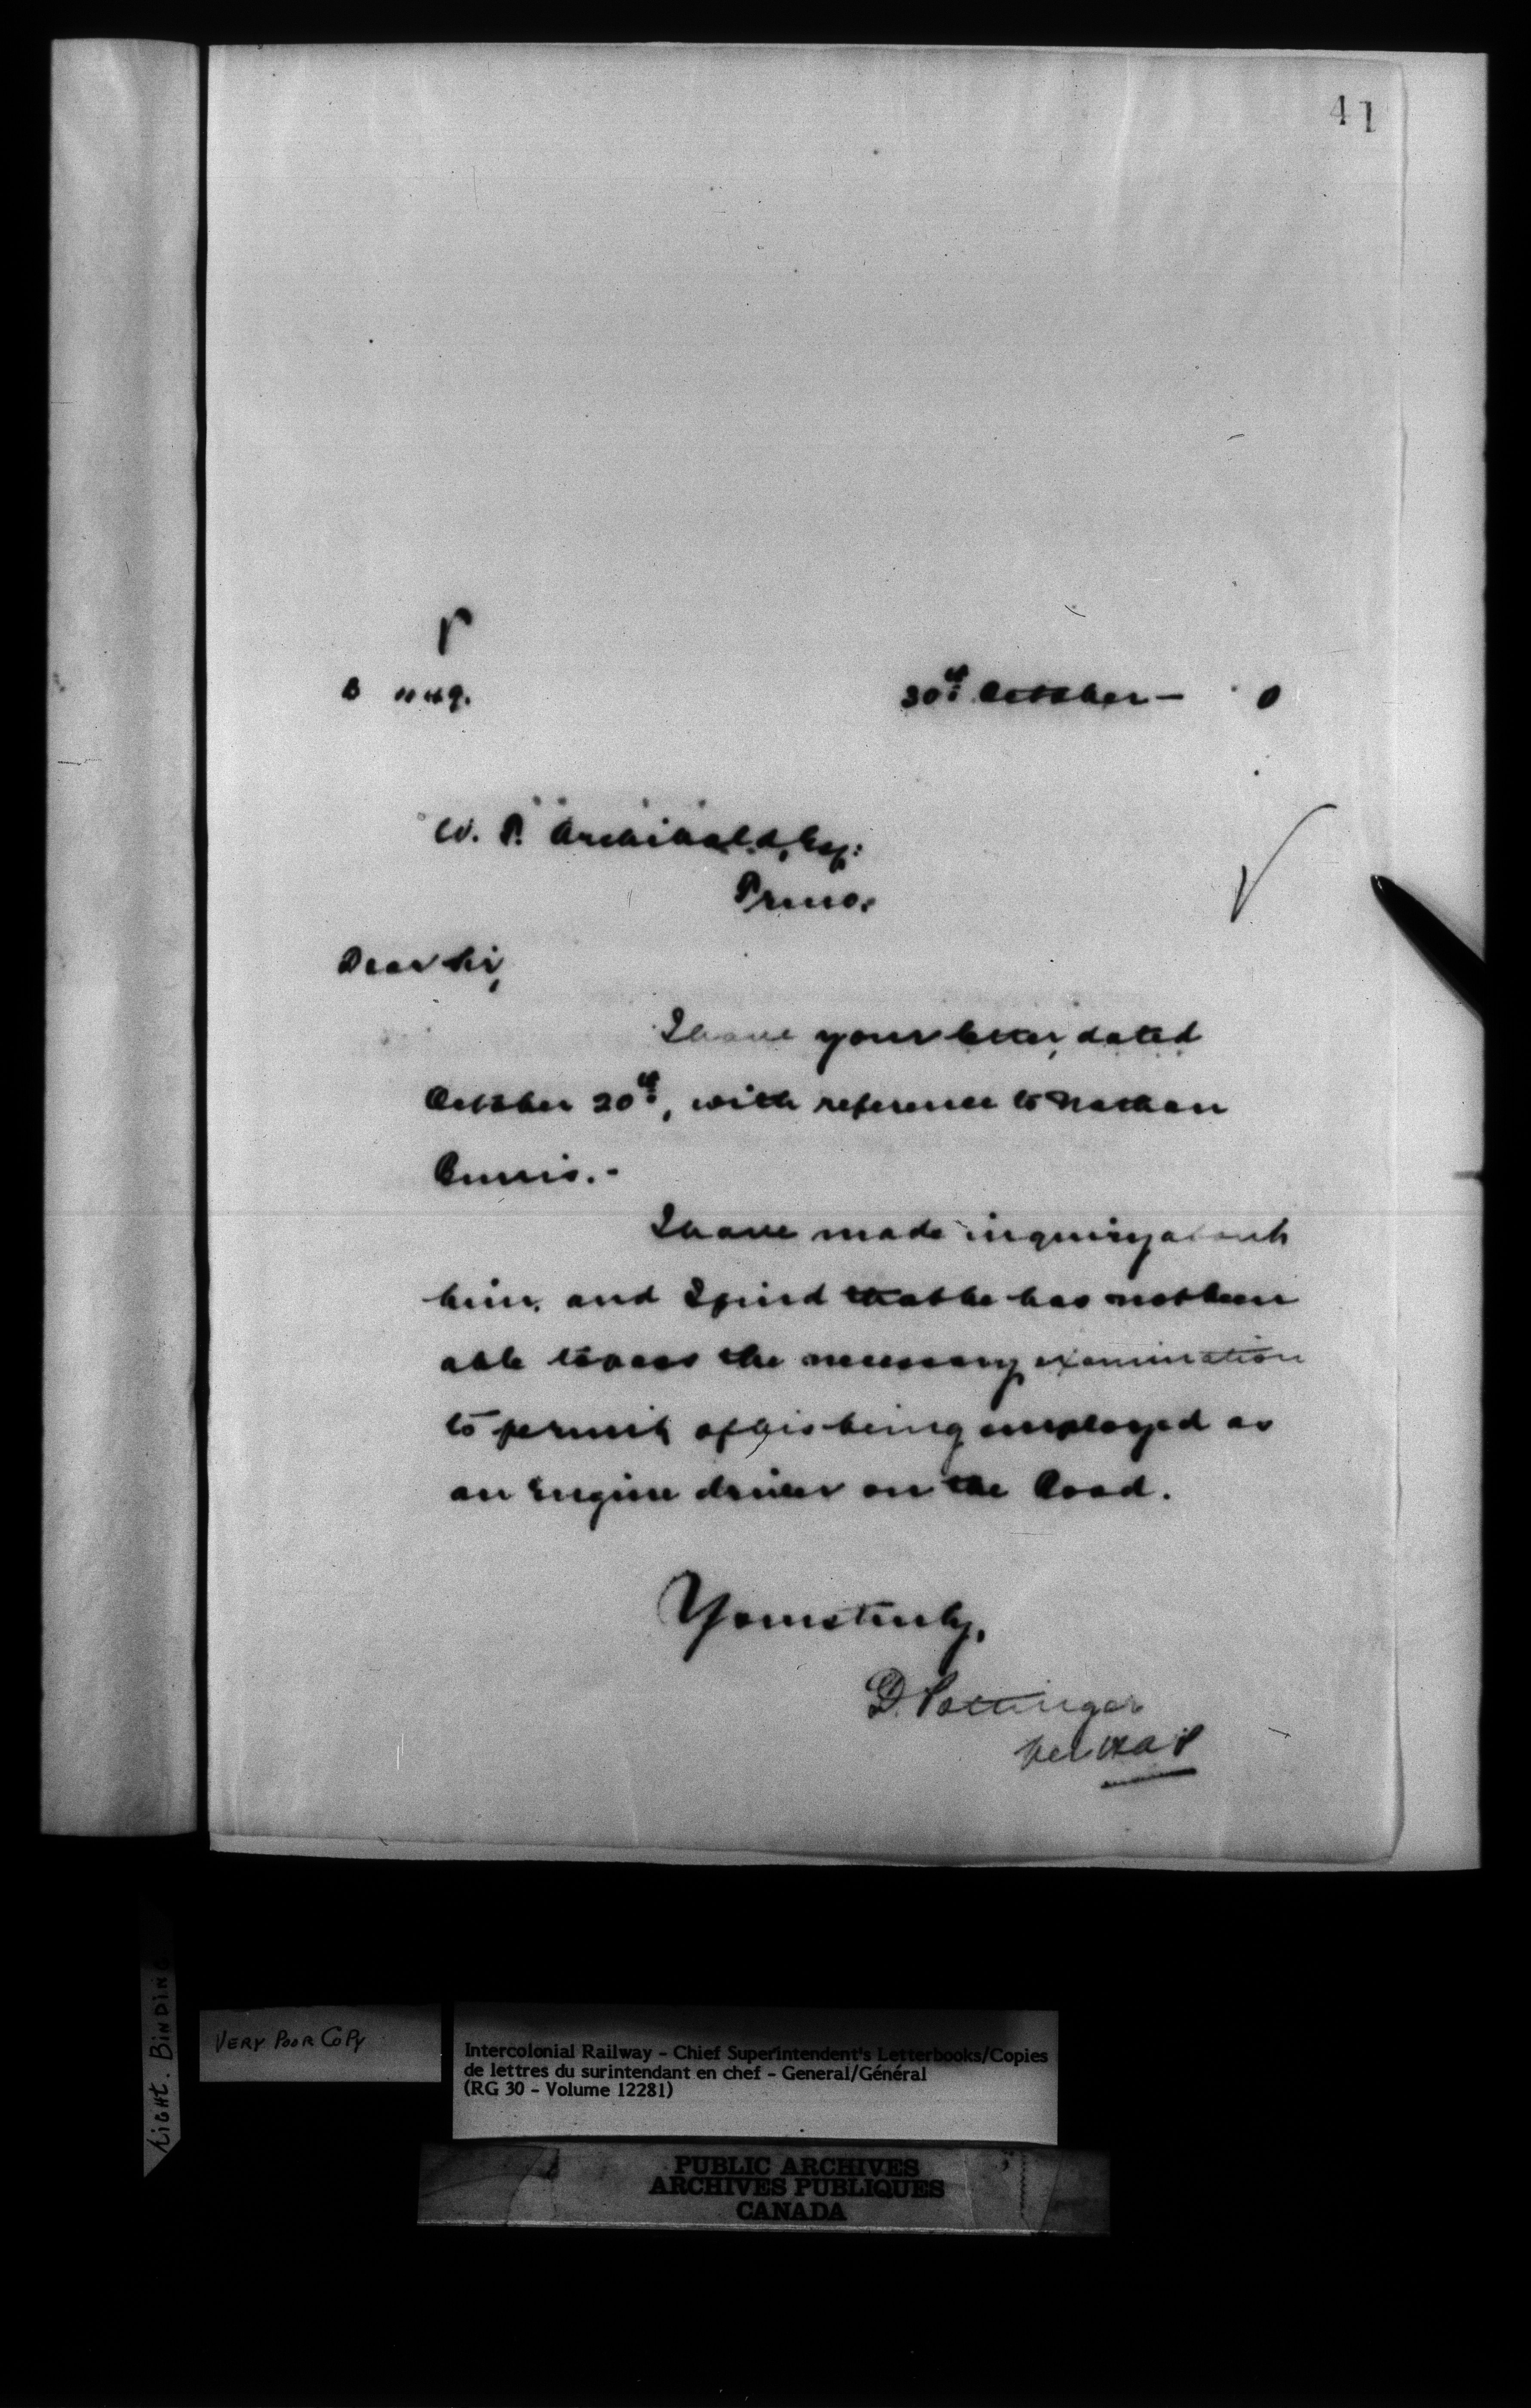 41
30th October - 0
W. P. Archibald, Esq:
Truro.
Dear Sir,
I have your letter, dated
October 20th, with reference to Nathan
I have made inquiry about
him, and I find that he has not been
able to pass the necessary examination
to permit of his being employed as
an Engine driver on the Road.
Yours truly,
D. Pottinger
per
VERY POOR COPY
TIGHT. BINDING
Intercolonial Railway - Chief Superintendent's Letterbooks/Copies
de lettres du surintendant en chef - General/Général
(RG 30 - Volume 12281)
PUBLIC ARCHIVES
ARCHIVES PUBLIQUES
CANADA